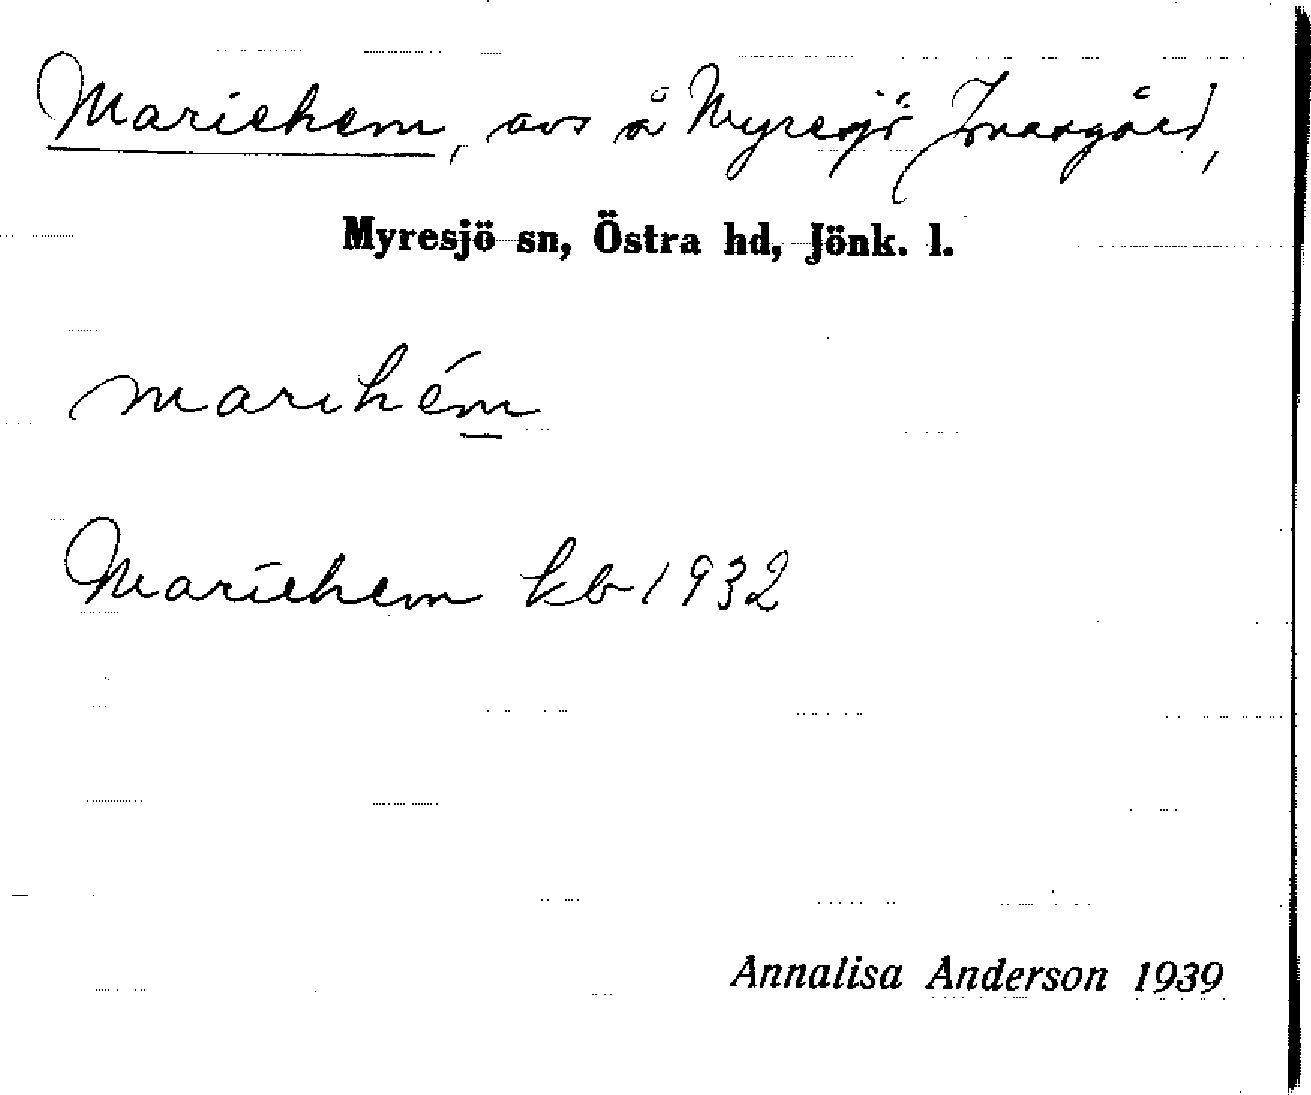 Mariehem, avs å Myresjö Ivarsgård,
Myresjö sn, Östra hd, Jönk. l.
marihém
Mariehem kb 1932
Annalisa Anderson 1939